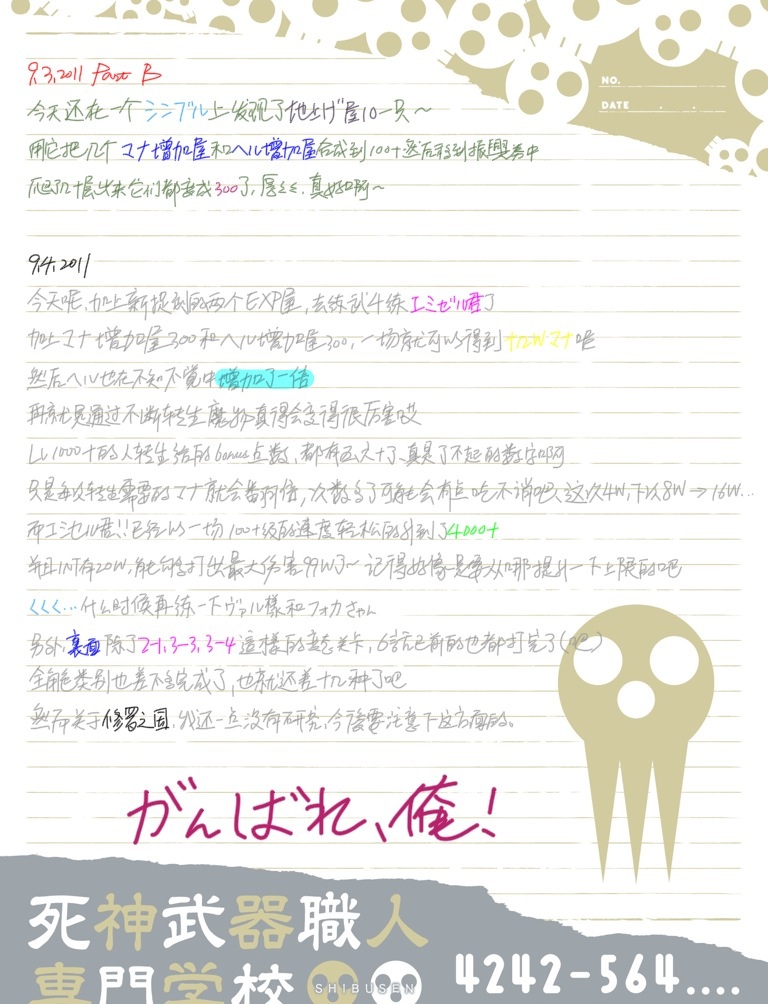 NO.
DATE . .
9.3.2011 Part B
今天还在一个シンブル上发现了地上げ屋10一只～
用它把几个マナ增加屋和ヘル增加屋合成到100+然后转到振興券中
爬了几十层出来它们都变成300了,厚々,真好啊～
9.4.2011
今天呢,加上新捉到的两个EXP屋,去练武斗练エミゼル君了
加上マナ增加屋300和ヘル增加屋300,一场就可以得到十几Wマナ呢
然后ヘル也在不知不觉中增加了一倍
再就是通过不断转生魔物真得会变得很厉害哎
Lv1000+的人转生给的bonus点数,都有五六十了,真是了不起的数字啊
只是每次转生需要的マナ就会番倍,次数多了可能会有点吃不消吧,这次4W,下次8W→16W...
而エミゼル君!!已经以一场100+级的速度轻松的升到了4000+
并且INT有20W,能够打出最大伤害99W了～记得好像是要从哪提升一下上限的吧
くくく…什么时候再练一下ヴァル様和フォカさん
另外,裏面除了2-1,3-3,3-4這樣的变态关卡,6話已前的也都打完了(吧)
全角色类别也差不多完成了,也就还差十几种了吧
然而关于修羅之国,我还一点没有研究,今後要注意下这方面的。
がんばれ、俺!
死神武器職人
専門学校
SHIBUSEN
4242-564....